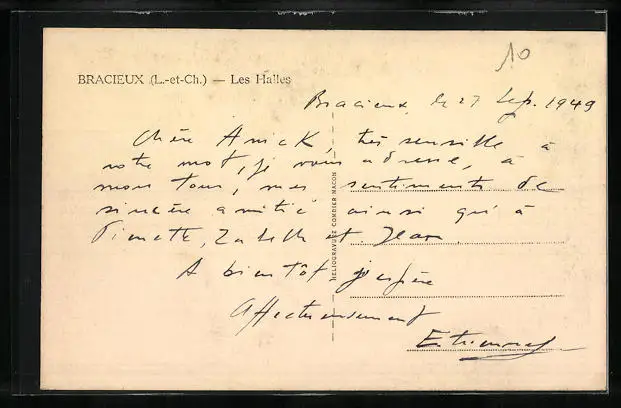 10
BRACIEUX (L.-et-Ch.) — Les Halles
Bracieux, le 27 Sep. 1949
Chère Anick, très sensible à
votre mot, je vous adresse, à
mon tour, mes sentiments de
sincère amitié ainsi qu'à
et Jean.
A bientôt j'espère
Affectueusement
HÉLIOGRAVURE COMBIER MACON